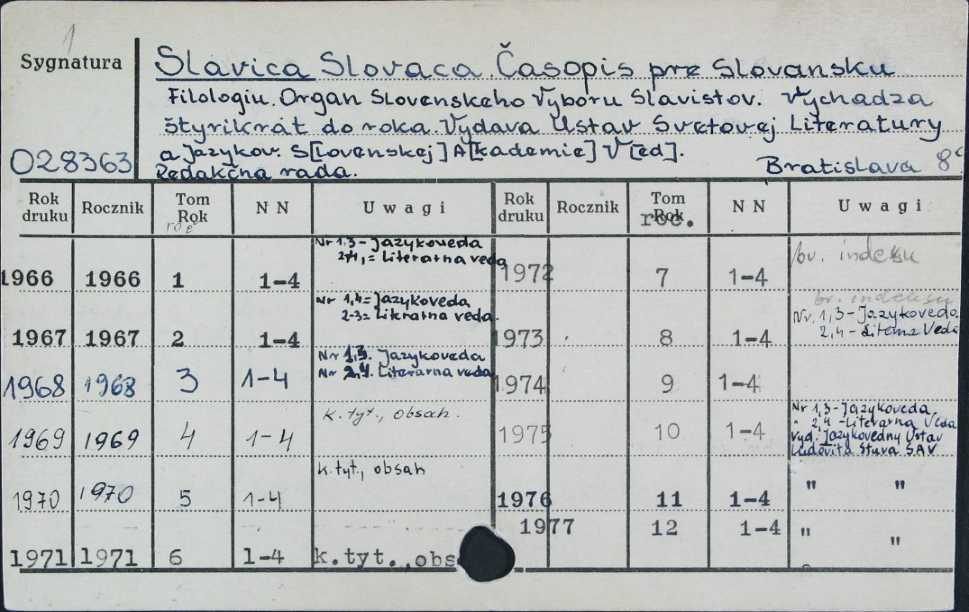 1
Sygnatura
Slavica Slovaca. Časopis pre Slovansku
Filologiu. Organ Slovenskeho Vyboru Slavistov. Vychadza
štyrikrát do roka. Vydava Ustav Svetovej Literatury
a Jazykov. S[lovenskej] A[kademie] V[ed].
028363
Redakčna rada. Bratislava 8°
Rok druku Rocznik Tom Rok roč N N Uwagi Rok druku Rocznik Tom Rok roč. N N Uwagi
1966 1966 1 1-4 Nr 1,3-Jazykoveda
2,4,= Literarna veda
1972 7 1-4 bv. indeksu
1967 1967 2 1-4 Nr 1,4= Jazykoveda
2-3= Literatna veda.
1973 8 1-4 br. indeksu
Nr. 1,3-Jazykoveda
2,4- Veda
1968 1968 3 1-4 Nr 1,3. Jazykoveda
Nr 2,4. Literarna veda
1974 9 1-4
1969 1969 4 1-4 k. tyt., obsah.
1975 10 1-4 Nr 1,3-Jazykoveda.
" 2,4-Literarna Veda
Vyd. Jazykovedny Ustav
Ludovita Stura SAV
1970 1970 5 1-4 k. tyt, obsah
1976 11 1-4 " "
1977 12 1-4 " "
1971 1971 6 1-4 k.tyt.,obs